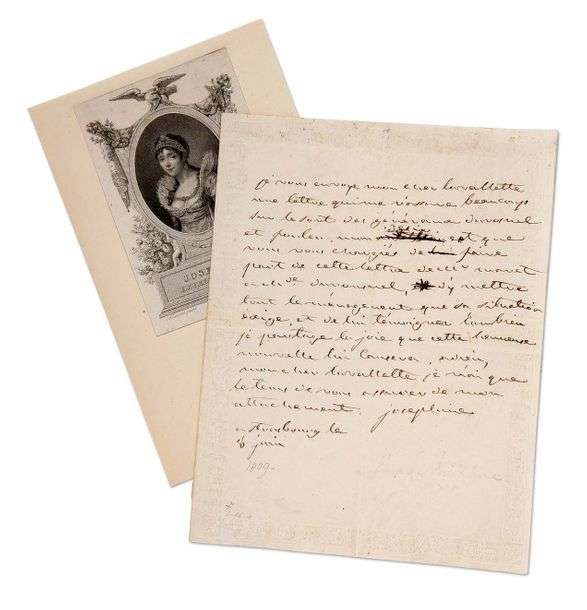 JOSE
je vous envoye mon cher lavallette
une lettre qui me rassure beaucoup
sur le sort des généraux durosnel
et foulers, mon est que
vous vous chargiés de faire
part de cette lettre de Mr monet
a de durosnel, d'y mettre
tout le ménagement que sa situation
exige, et de lui témoigner combien
je partage la joie que cette heureuse
nouvelle lui causera, adieu,
mon cher lavallette je n'ai que
le tems de vous assurer de mon
attachement. joséphine
a strasbourg le
juin
1809.